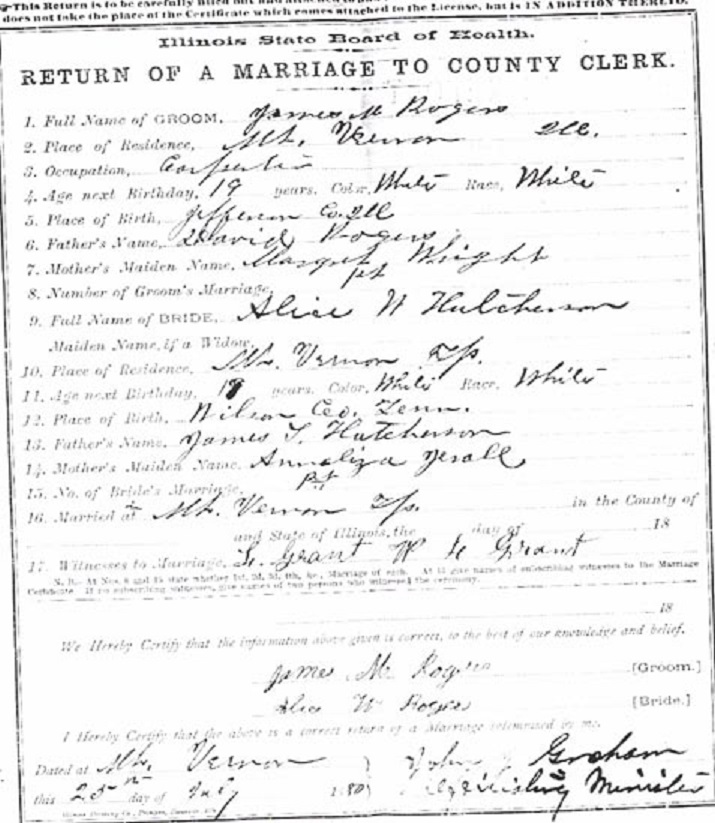 This Return is to be carefully filled out and
does not take the place of the Certificate which comes attached to the License, but is IN ADDITION THERETO.
Illinois State Board of Health.
RETURN OF A MARRIAGE TO COUNTY CLERK.
1. Full Name of GROOM, James M Rogers
2. Place of Residence, Mt. Vernon Ill.
3. Occupation, Carpenter
4. Age next Birthday, 19 years. Color, White Race, White
5. Place of Birth, Jefferson Co. Ill
6. Father's Name, David Rogers
7. Mother's Maiden Name, Margret Wright
8. Number of Groom's Marriage, 1st
9. Full Name of BRIDE, Alice W Hutcherson
Maiden Name, if a Widow,
10. Place of Residence, Mt. Vernon T/p.
11. Age next Birthday, years. Color, White Race, White
12. Place of Birth, Wilson Co. Tenn.
13. Father's Name, James T. Hutcherson
14. Mother's Maiden Name, Annaliza
15. No. of Bride's Marriage, 1st
16. Married at Mt. Vernon T/p. in the County of
and State of Illinois, the day of 18
17. Witnesses to Marriage, Grant W Grant
N. B.—At Nos. 8 and 15 state whether 1st, 2d, 3d, 4th, &c., Marriage of each. At 17 give names of subscribing witnesses to the Marriage
Certificate. If no subscribing witnesses, give names of two persons who witnessed the ceremony.
18
We Hereby Certify that the information above given is correct, to the best of our knowledge and belief.
James M. Rogers [Groom.]
Alice W Rogers [Bride.]
I Hereby Certify that the above is a correct return of a Marriage solemnized by me.
Dated at Mt. Vernon John Graham
this 25th day of July 180 Officiating Minister